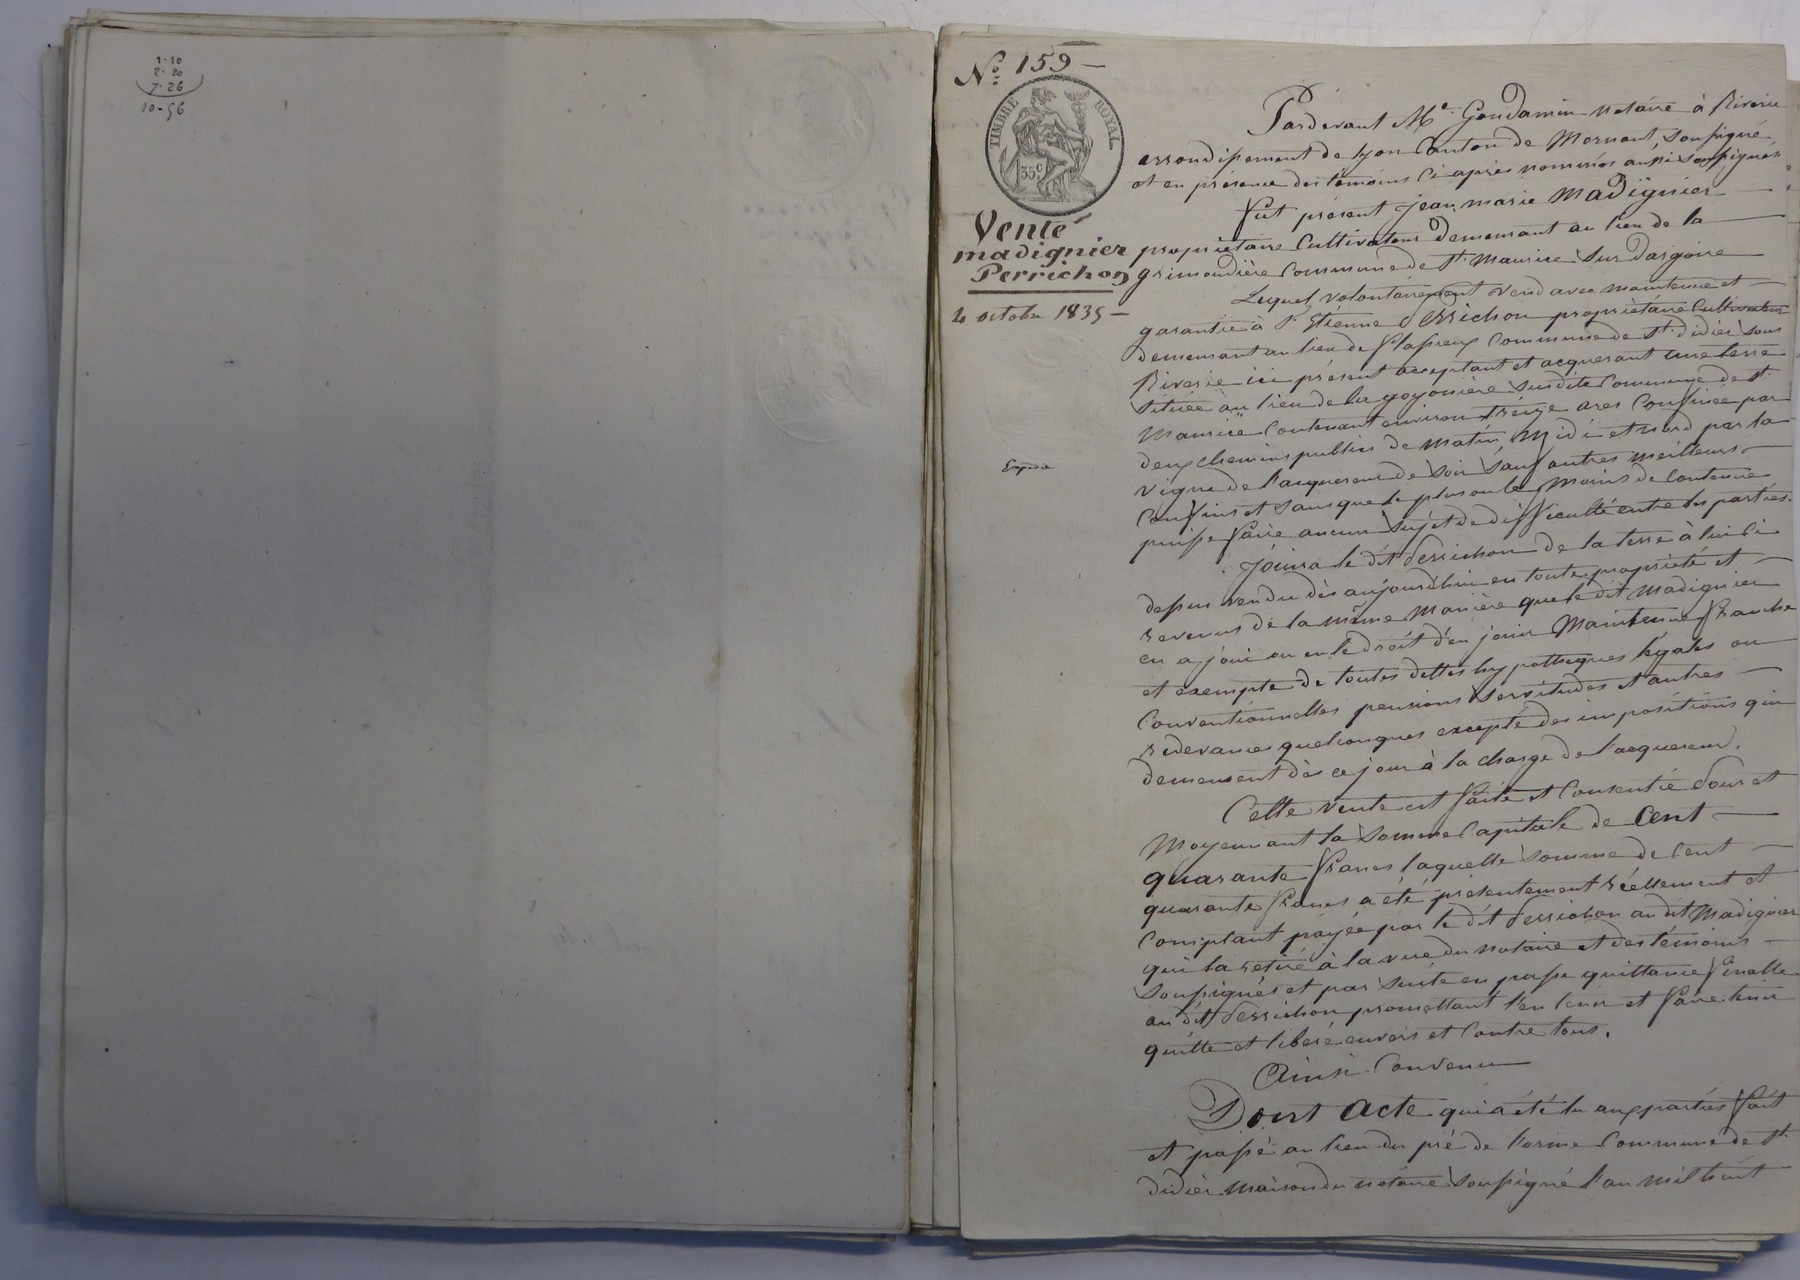 1-10
2-20
7-26
10-56
N.° 159 —
TIMBRE ROYAL
35 c.
Vente
madignier
Perrichon
4 octobre 1835 —
Expédié
Pardevant M.e Gondamin notaire à Riverie
arrondissement de Lyon Canton de Mornant, soussigné
et en présence des témoins ci après nommés aussi soussignés
fut présent jean marie Madignier
propriétaire Cultivateur demeurant au lieu de la
grimondière Commune de St. Maurice Sur dargoire
Lequel volontairement vend avec maintenue et
garantie à Sr. Etienne Perrichon propriétaire Cultivateur
demeurant au lieu de flapieux Commune de St. didier Sous
Riverie ici présent acceptant et acquerant une terre
Située au lieu de la goyonière Susdite Commune de St.
Maurice Contenant environ treize ares Confinée par
deux chemins publics de matin, Midi et nord par la
vigne de l'acquereur de Soir Sauf autres meilleurs
Confins et sans que le plus ou le Moins de Contenue
puisse faire aucun Sujet de difficulté entre les parties.
Jouira le dit Perrichon de la terre à lui ci
dessus vendue dès aujourd'hui en toute propriété et
revenus de la même Manière que le dit Madignier
en a joui ou eu le droit d'en jouir Maintenue franche
et exempte de toutes dettes hypothèques légales ou
Conventionnelles pensions Servitudes et autres
redevances quelconques excepté des impositions qui
demeurent dès ce jour à la charge de l'acquereur.
Cette vente est faite et Consentie Pour et
Moyennant la Somme Capitale de Cent
quarante francs laquelle Somme de Cent
quarante francs a été présentement réellement et
Comptant payée par le dit Perrichon au dit Madignier
qui la retiré à la vue du notaire et des témoins
Soussignés et par Suite en passe quittance finalle
au dit Perrichon promettant l'en tenir et faire tenir
quitte et libéré envers et Contre tous.
Ainsi Convenu
Dont Acte qui a été lu aux parties fait
et passé au lieu du pré de l'orme Commune de St.
didier maison du notaire Soussigné l'an mil huit